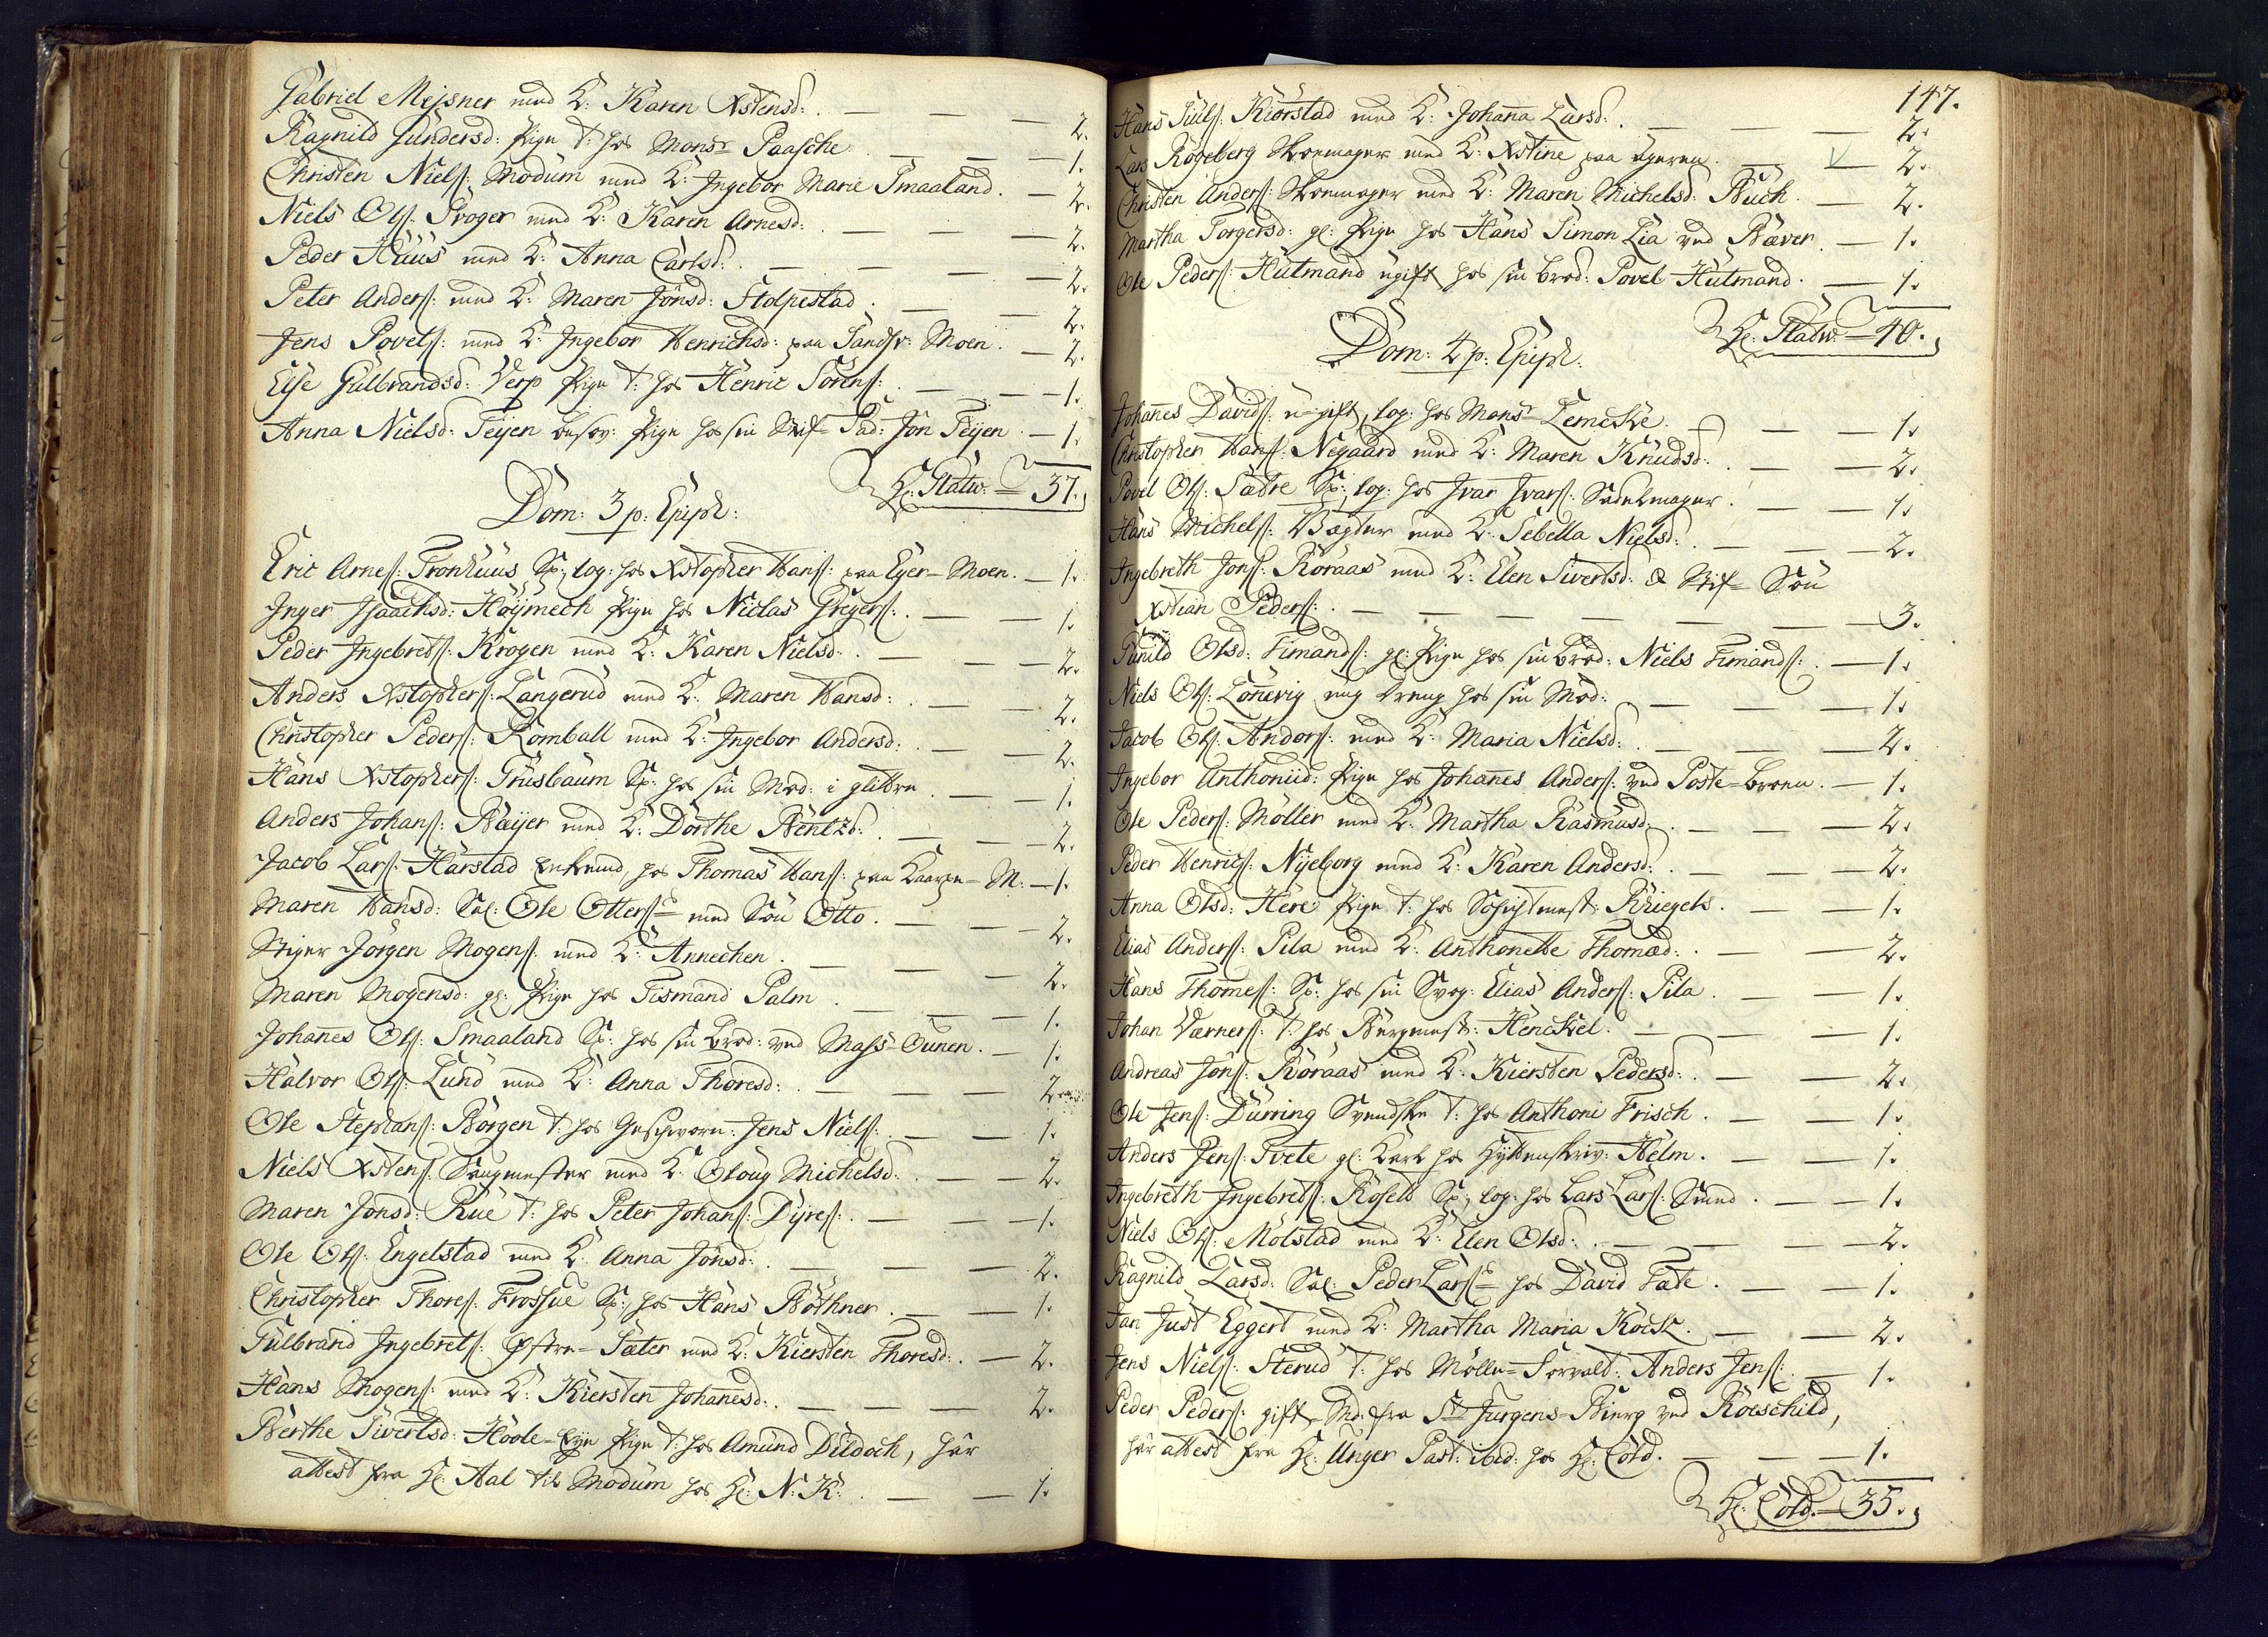 Gabriel Meisner med K: Karen Xstensd: . — — — 2.
Ragnild Gundersd: Pige t: hos Monsr Paasche . — — 1.
Christen Niels: Modum med K: Ingebor Marie Smaaland. — 2.
Niels Ols: Kroger med K: Karen Arnesd: . — — — 2.
Peder Huus med K: Anna Carlsd: . — — — 2.
Peter Anders: med K: Maren Jönsd: Stolpestad . — — 2.
Jens Povels: med K: Ingebor Henrichsd: paa Sandsv: Moen. — 2.
Else Gulbrandsd: Verp Pige t: hos Henric Sörens: . — — 1.
Anna Nielsd: Teyen besov: Pige hos sin Stif-Fad: Jon Teyen. — 1.
Hr: Statw. — 37.
Dom: 3 p: Epiph:
Eric Arnes: Tronhuus Sp:, log: hos Xstopher Hans: paa Eger-Moen. — 1.
Inger Isaachsd: Höymech Pige hos Niclas Greyers: . — — 1.
Peder Ingebrets: Krogen med K: Karen Nielsd: . — — — 2.
Anders Xstophers: Langerud med K: Maren Hansd: . — — 2.
Christopher Peders: Komball med K: Ingebor Andersd: . — — 2.
Hans Xstophers: Grusbaum Sp: hos sin Mod: i glittre . — — 1.
Anders Johans: Bæyer med K: Dorthe Bentzd: . — — — 2.
Jacob Lars: Harstad Enkemd, hos Thomas Hans: paa Kaarpe-M: — 1.
Maren Hansd: Sal: Ole Otters: med Sön Otto. — — — 2.
Stiger Jörgen Mogens: med K: Annechen . — — — 2.
Maren Mogensd: gl: Pige hos Tismand Palm . — — — 1.
Johanes Ols: Smaaland Sp: hos sin Brod: ved Mass-Ounen. — 1.
Halvor Ols: Lund med K: Anna Thoresd: . — — — 2.
Ole Stephans: Börgen t: hos Geschworn: Jens Niels: . — — 1.
Niels Xstens: Saugmester med K: Oloug Michelsd: . — — 2.
Maren Jonsd: Rue t: hos Peter Johans: Dyres: . — — — 1.
Ole Ols: Engelstad med K: Anna Jönsd: . — — — 2.
Christopher Thores: Frossue Sp:, hos Hans Böthner . — — 1.
Gulbrand Ingebrets: Östre-Sæter med K: Kiersten Thoresd: . — 2.
Hans Mogens: med K: Kiersten Johanesd: . — — — 2.
Berthe Sivertsd: Hoole-Eye Pige t: hos Amund Dildoch, har
attest fra Hr: Aal til Modum hos Hr: N: K: . — — 1.
147.
Hans Juuls: Kiörstad med K: Johana Larsd: . — — — 2.
Lars Rögeberg Skoemager med K: Xstine paa Ageren. — — 2.
Christen Anders: Skoemager med K: Maren Michelsd: Buch. — 2.
Martha Torgersd: gl: Pige hos Hans Simon Lia ved Bæver. — 1.
Ole Peders: Hutmand ugift hos sin Brod: Povel Hutmand. — 1.
Hr: Statw. — 40.
Dom: 4 p: Epiph:
Johanes Davids: u-gift, log: hos Monsr Lemcke. — — — 1.
Christopher Hans: Negaard med K: Maren Knudsd: . — — 2.
Povel Ols: Sadre Sp:, log: hos Ivar Ivars: Sadelmager. — — 1.
Hans Michels: Vægter med K: Sebella Nielsd: . — — — 2.
Ingebreth Jons: Röraas med K: Elen Sivertsd: & Stif-Sön
Xstian Peders: . — — — — — — 3.
Gunild Olsd: Fimands: gl: Pige hos sin Brod: Niels Fimands: . — 1.
Niels Ols: Lonevig ung dreng hos sin Mod: — — — 1.
Jacob Ols: Andors: med K: Maria Nielsd: . — — — 2.
Ingebor Anthonid: Pige hos Johanes Anders: ved Poste-broen. — 1.
Ole Peders: Möller med K: Martha Rasmusd: . — — — 2.
Peder Henrics: Nyeborg med K: Karen Andersd: . — — — 2.
Anna Olsd: Here Pige t: hos Schichtmest: Kriegels. — — 1.
Elias Anders: Pila med K: Anthonette Thomæd: . — — 2.
Hans Thomes: Sp: hos sin Svog: Elias Anders: Pila . — — 1.
Johan Værners: t: hos Bergmest: Henckel. — — — 1.
Andreas Jöns: Röraas med K: Kiersten Pedersd: . — — 2.
Ole Jens: Düring Svendske t: hos Anthoni Frisch . — — 1.
Anders Jens: Tvete gl: Karl hos Hyttenskriv: Helm. — — 1.
Ingebreth Ingebrets: Rosetd Sp:, log: hos Lars Lars: Smed . — — 1.
Niels Ols: Molstad med K: Elen Olsd: . — — — 2.
Ragnild Larsd: Sal: Peder Lars: hos David Fate. — — 1.
Jan Just Eggert med K: Martha Maria Kock. — — 2.
Jens Niels: Sterud t: hos Mölle-Forvalt: Anders Jens: — 1.
Peder Peders: gift Md: fra St Jurgens-Bierg ved Roeschild,
har attest fra Hr: Unger Past: ibid: hos Hr: Cold. — — 1.
Hr: Cold. — 35.